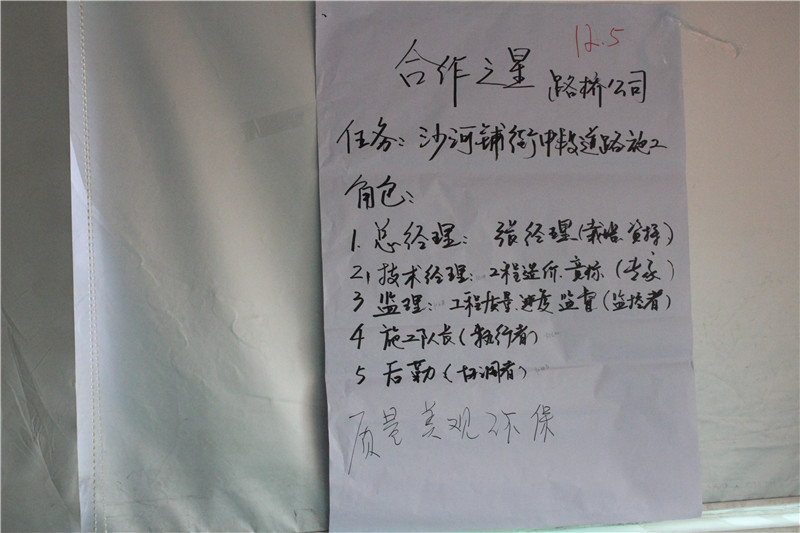 12.5
合作之星 路桥公司
任务：沙河铺街中段道路施工
角色：
1. 总经理：张经理(栽培、支持)
2, 技术经理：工程造价、竞标（专家）
3 监理：工程质量、进度监督（监控者）
4 施工队长（执行者）
5 后勤（协调者）
质量 美观 环保